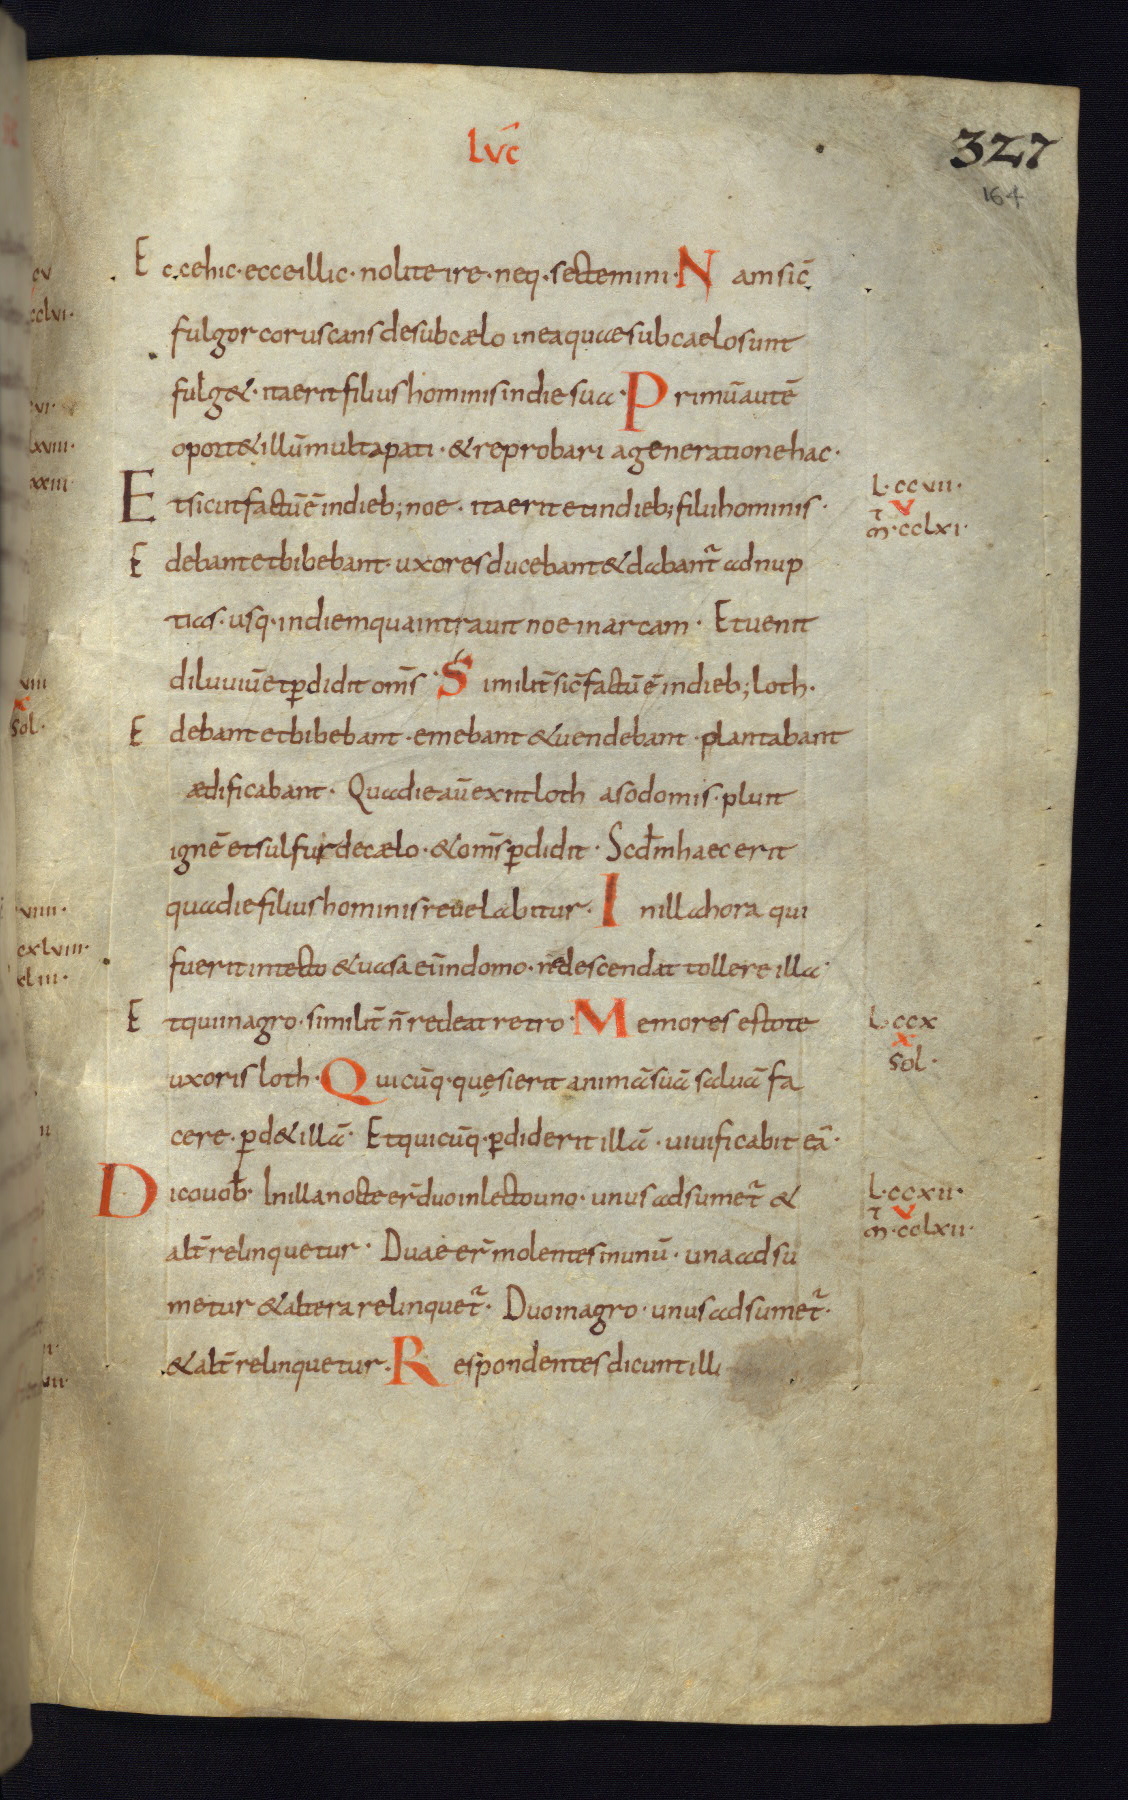 Lvc̄
327
164
Eccehic· ecceillic· nolite ire· neq· sectemini· Nam sic̄
fulgor coruscans desubcælo in ea quae sub caelo sunt
fulg&· ita erit filius hominis in die sua· Primū autē
oport& illū multa pati· & reprobari a generatione hac·
Et sicut factū ē in dieb; noe· ita erit et in dieb; filii hominis·
Edebant et bibebant· uxores ducebant & dabant᷑ ad nup
tias· usq· in diem qua intrauit noe in arcam· Et uenit
diluuiū et ꝑdidit om̄s· Similit̄ sic̄ factū ē in dieb; loth·
Edebant et bibebant· emebant & uendebant· plantabant
ædificabant· Qua die aū exiit loth a sodomis· pluit
ignē et sulfur de cælo· & om̄s ꝑdidit· Scd̄m haec erit
qua die filius hominis reuelabitur· In illa hora qui
fuerit in tecto & uasa eī in domo· n̄ descendat tollere illa·
Et qui in agro· similit̄ n̄ redeat retro· Memores estote
uxoris loth· Quicūq· quęsierit animā suā saluā fa
cere· ꝑd& illā· Et quicūq· ꝑdiderit illā· uiuificabit eā·
Dico uob̄· In illa nocte er̄ duo in lecto uno· unus adsumet᷑ &
alt̄ relinquetur· Duae er̄ molentes in unū· una adsu
metur & altera relinquet᷑· Duo in agro· unus adsumet᷑·
& alt̄ relinquetur· Respondentes dicunt illi
L· ccvii·
v
m̄· cclxi·
L· ccx
x
sol·
L· ccxii·
v
m̄· cclxii·
viii
x
sol·